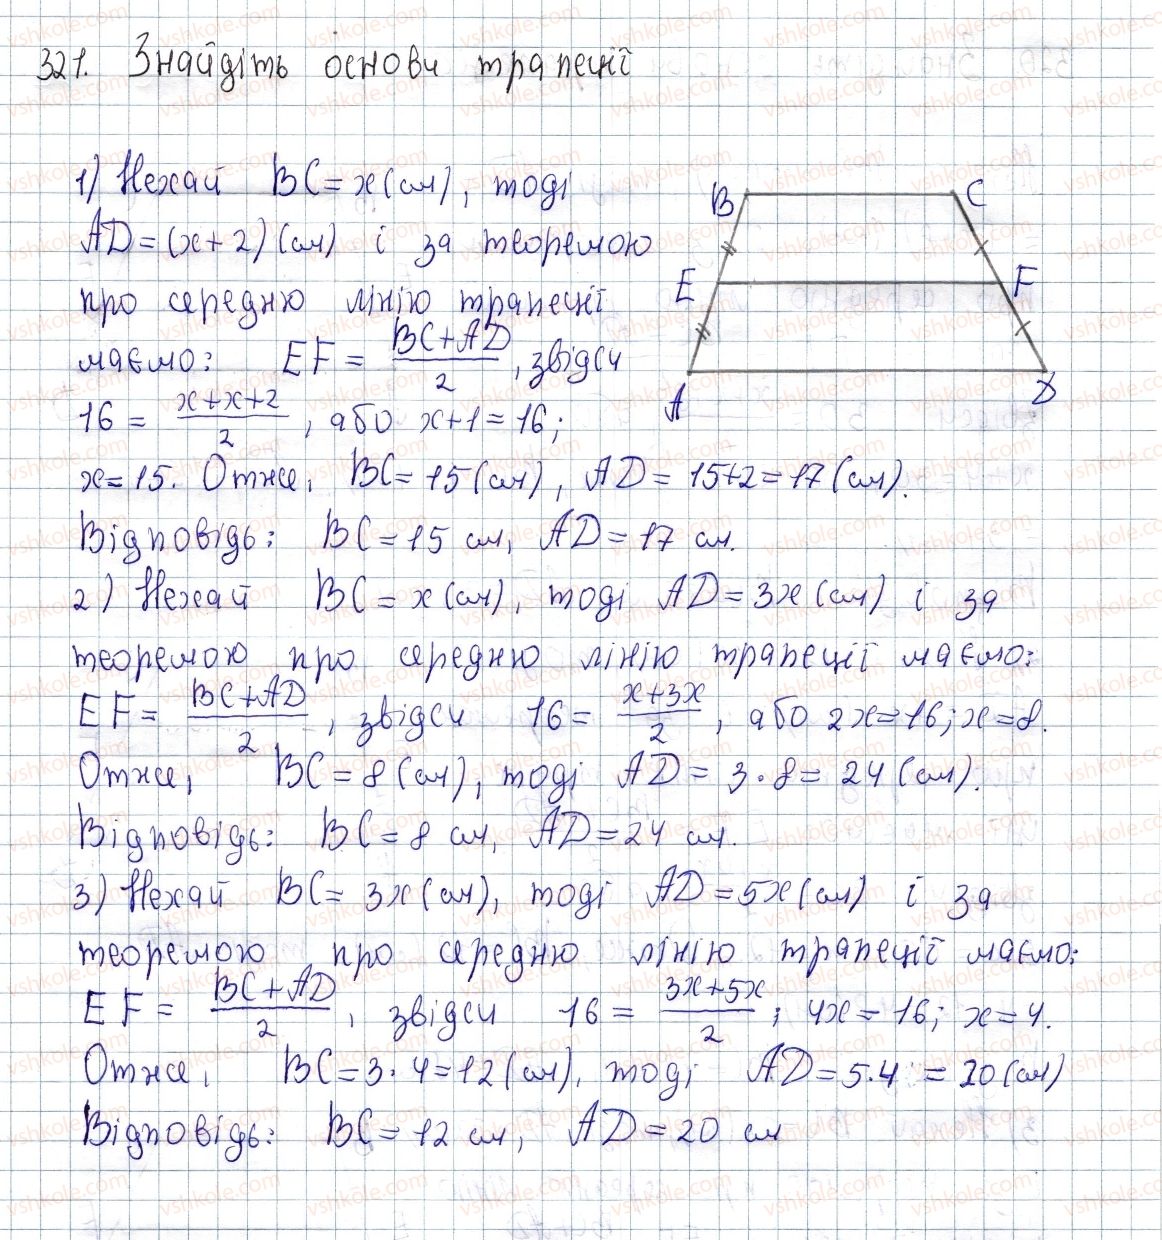 321. Знайдіть основи трапеції
1) Нехай BC = x (см), тоді
AD = (x + 2) (см) і за теоремою
про середню лінію трапеції
маємо: EF = (BC + AD)/2, звідси
16 = (x + x + 2)/2, або x + 1 = 16;
x = 15. Отже, BC = 15 (см), AD = 15 + 2 = 17 (см).
Відповідь: BC = 15 см, AD = 17 см.
2) Нехай BC = x (см), тоді AD = 3x (см) і за
теоремою про середню лінію трапеції маємо:
EF = (BC + AD)/2, звідси 16 = (x + 3x)/2, або 2x = 16; x = 8.
Отже, BC = 8 (см), тоді AD = 3 · 8 = 24 (см).
Відповідь: BC = 8 см, AD = 24 см.
3) Нехай BC = 3x (см), тоді AD = 5x (см) і за
теоремою про середню лінію трапеції маємо:
EF = (BC + AD)/2, звідси 16 = (3x + 5x)/2; 4x = 16; x = 4.
Отже, BC = 3 · 4 = 12 (см), тоді AD = 5 · 4 = 20 (см)
Відповідь: BC = 12 см, AD = 20 см
B C
E F
A D
vshkole.com